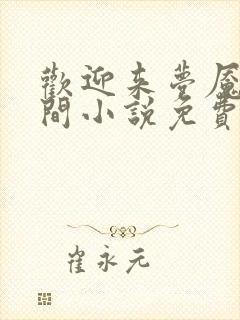 歡迎来夢魘
間小說免費
崔永元